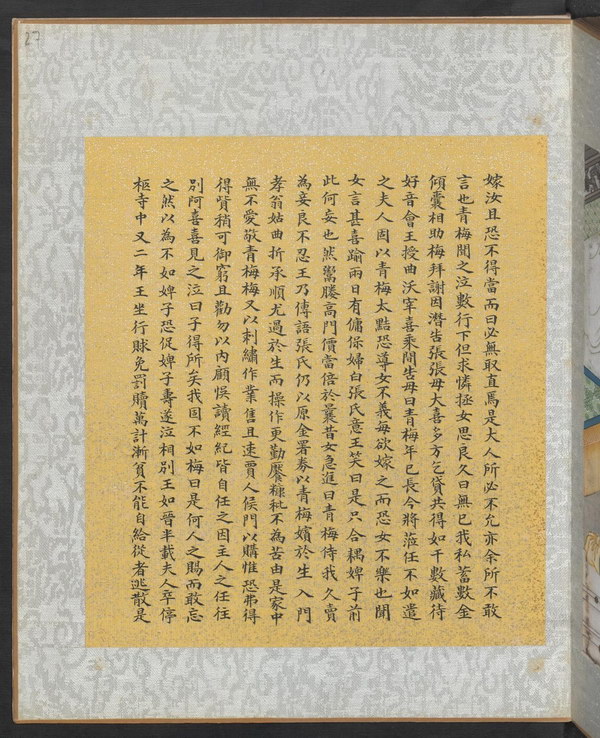 27
嫁汝且恐不得當而曰必無取直焉是大人所必不允亦余所不敢
言也青梅聞之泣數行下但求憐拯女思良久曰無已我私蓄數金
傾囊相助梅拜謝因潛告張張母大喜多方乞貸共得如干數藏待
好音會王授曲沃宰喜乘間告母曰青梅年已長今將蒞任不如遣
之夫人固以青梅太黠恐導女不義每欲嫁之而恐女不樂也聞
女言甚喜踰兩日有傭保婦白張氏意王笑曰是只合耦婢子前
此何妄也然鬻媵高門價當倍於曩昔女急進曰青梅侍我久賣
為妾良不忍王乃傳語張氏仍以原金署券以青梅嬪於生入門
孝翁姑曲折承順尤過於生而操作更勤饜糠秕不為苦由是家中
無不愛敬青梅梅又以刺繡作業售且速賈人候門以購惟恐弗得
得貲稍可御窮且勸勿以內顧悞讀經紀皆自任之因主人之任往
別阿喜喜見之泣曰子得所矣我固不如梅曰是何人之賜而敢忘
之然以為不如婢子恐促婢子壽遂泣相別王如晉半載夫人卒停
柩寺中又二年王坐行賕免罰贖萬計漸貧不能自給從者逃散是